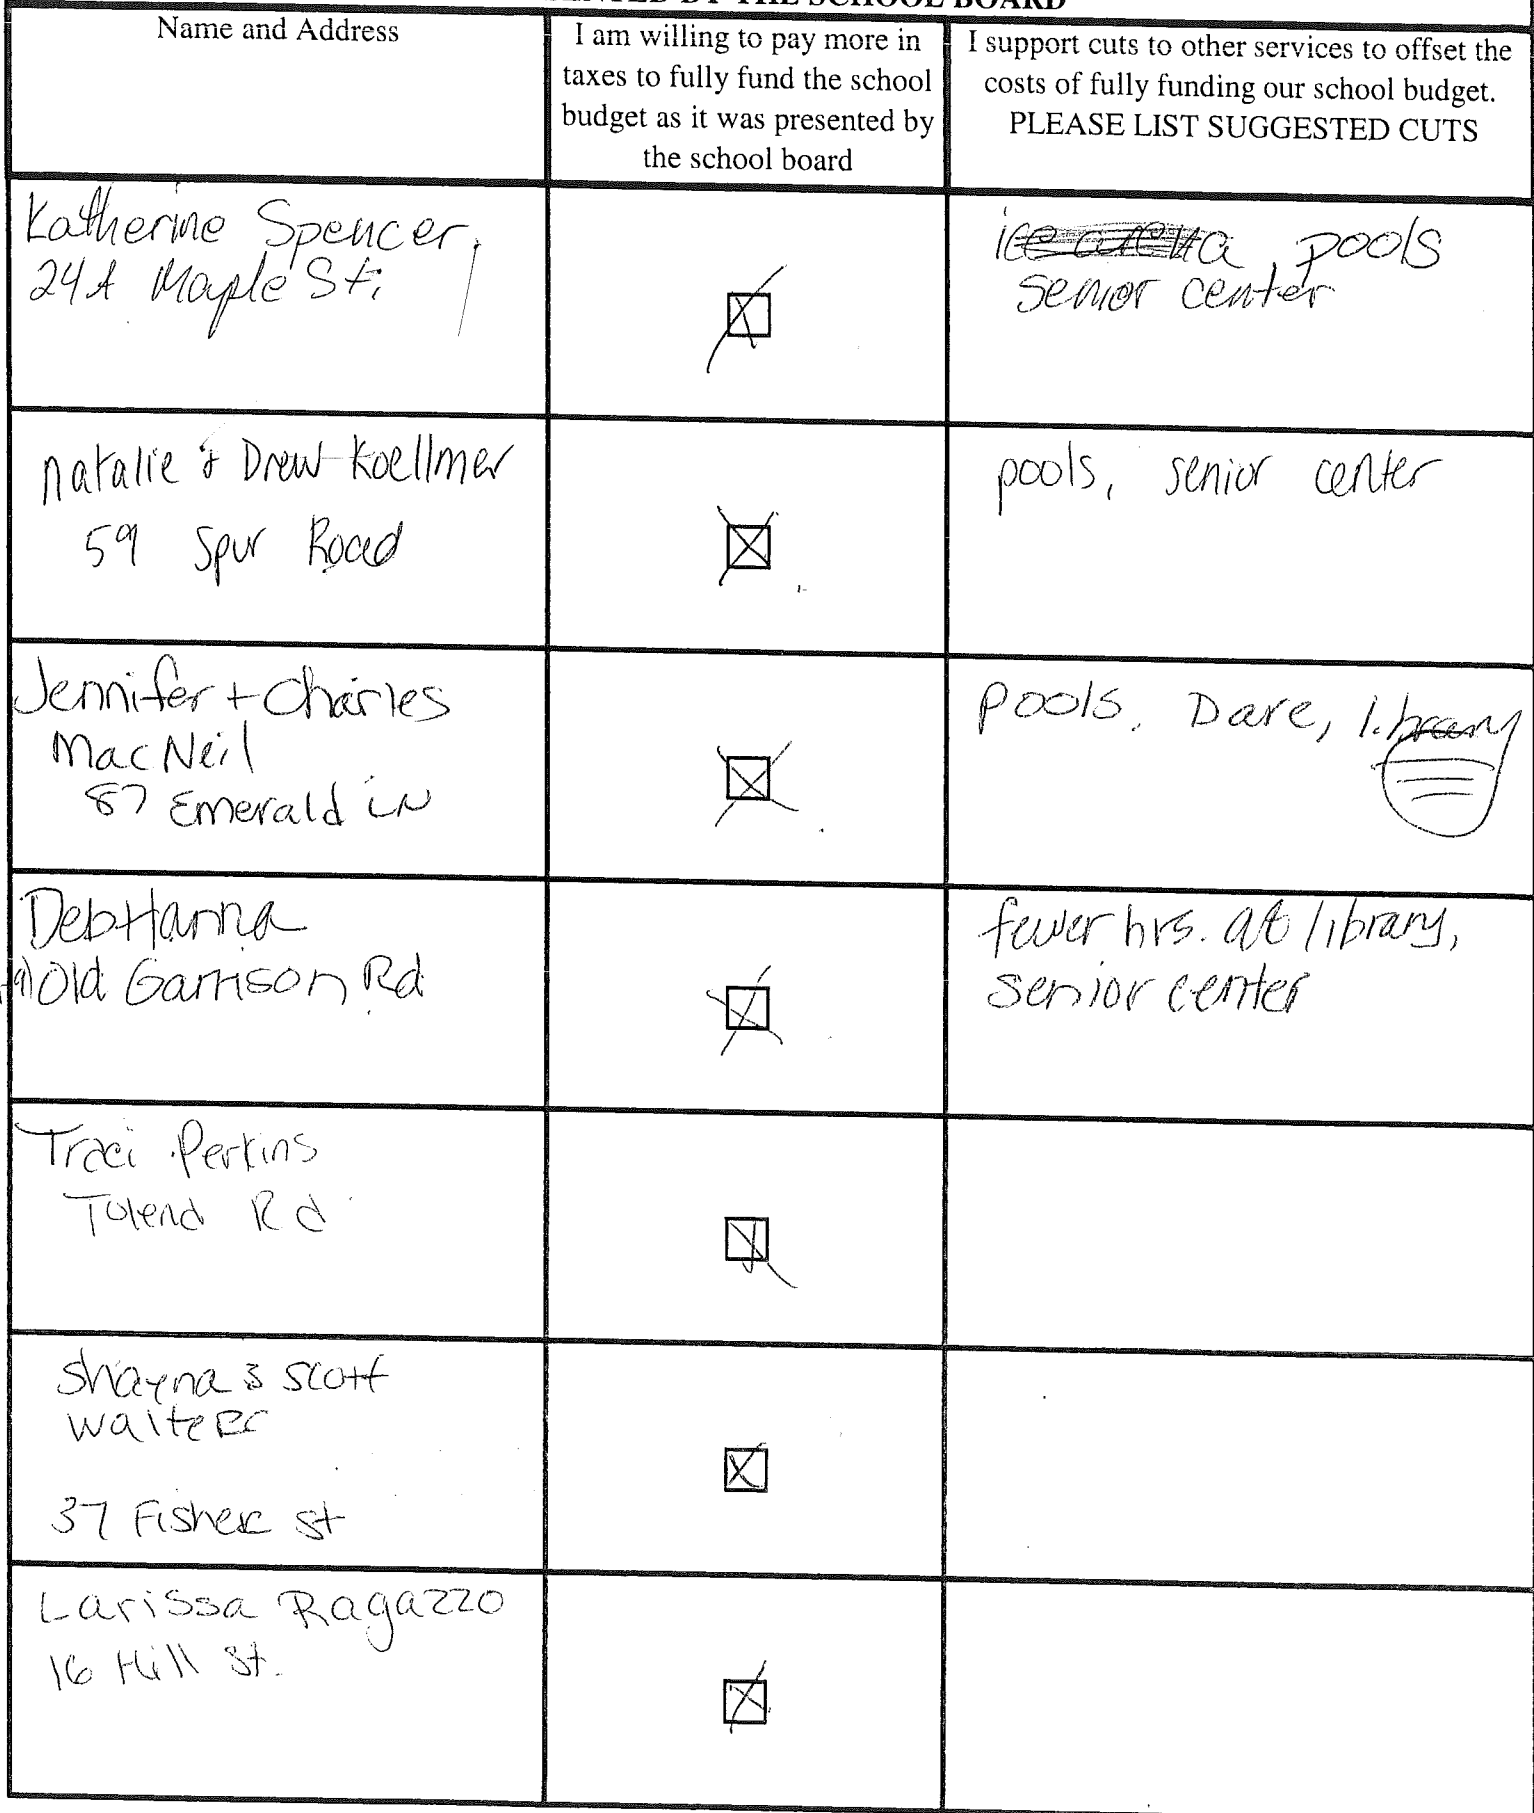 BY THE SCHOOL BOARD
Name and Address
I am willing to pay more in
taxes to fully fund the school
budget as it was presented by
the school board
I support cuts to other services to offset the
costs of fully funding our school budget.
PLEASE LIST SUGGESTED CUTS
Katherine Spencer,
24A Maple St.
pools
senior center
natalie & Drew Koellmer
59 Spur Road
pools, senior center
Jennifer + Charles
MacNeil
87 Emerald LN
pools, Dare, library
Deb Hanna
Old Garrison Rd
fewer hrs. at library,
senior center
Traci Perkins
Tolend Rd
Shayna & Scott
Walters
37 Fisher St
Larissa Ragazzo
16 Hill St.